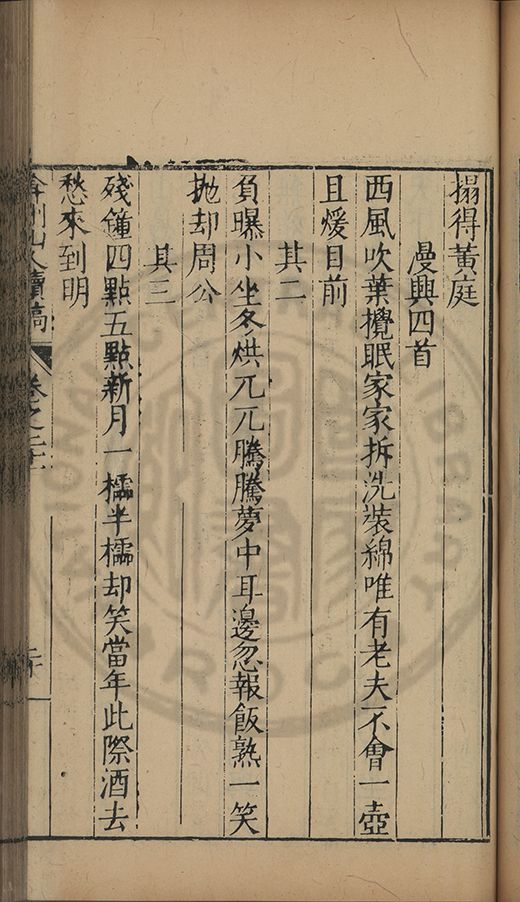 搨得黃庭
漫興四首
西風吹葉攪眠家家拆洗裝綿唯有老夫不會一壺
且煖目前
其二
負曝小坐冬烘兀兀騰騰夢中耳邊忽報飯熟一笑
拋却周公
其三
殘鐘四點五點新月一櫺半櫺却笑當年此際酒去
愁來到明
弇州山人續稿
卷之二十二